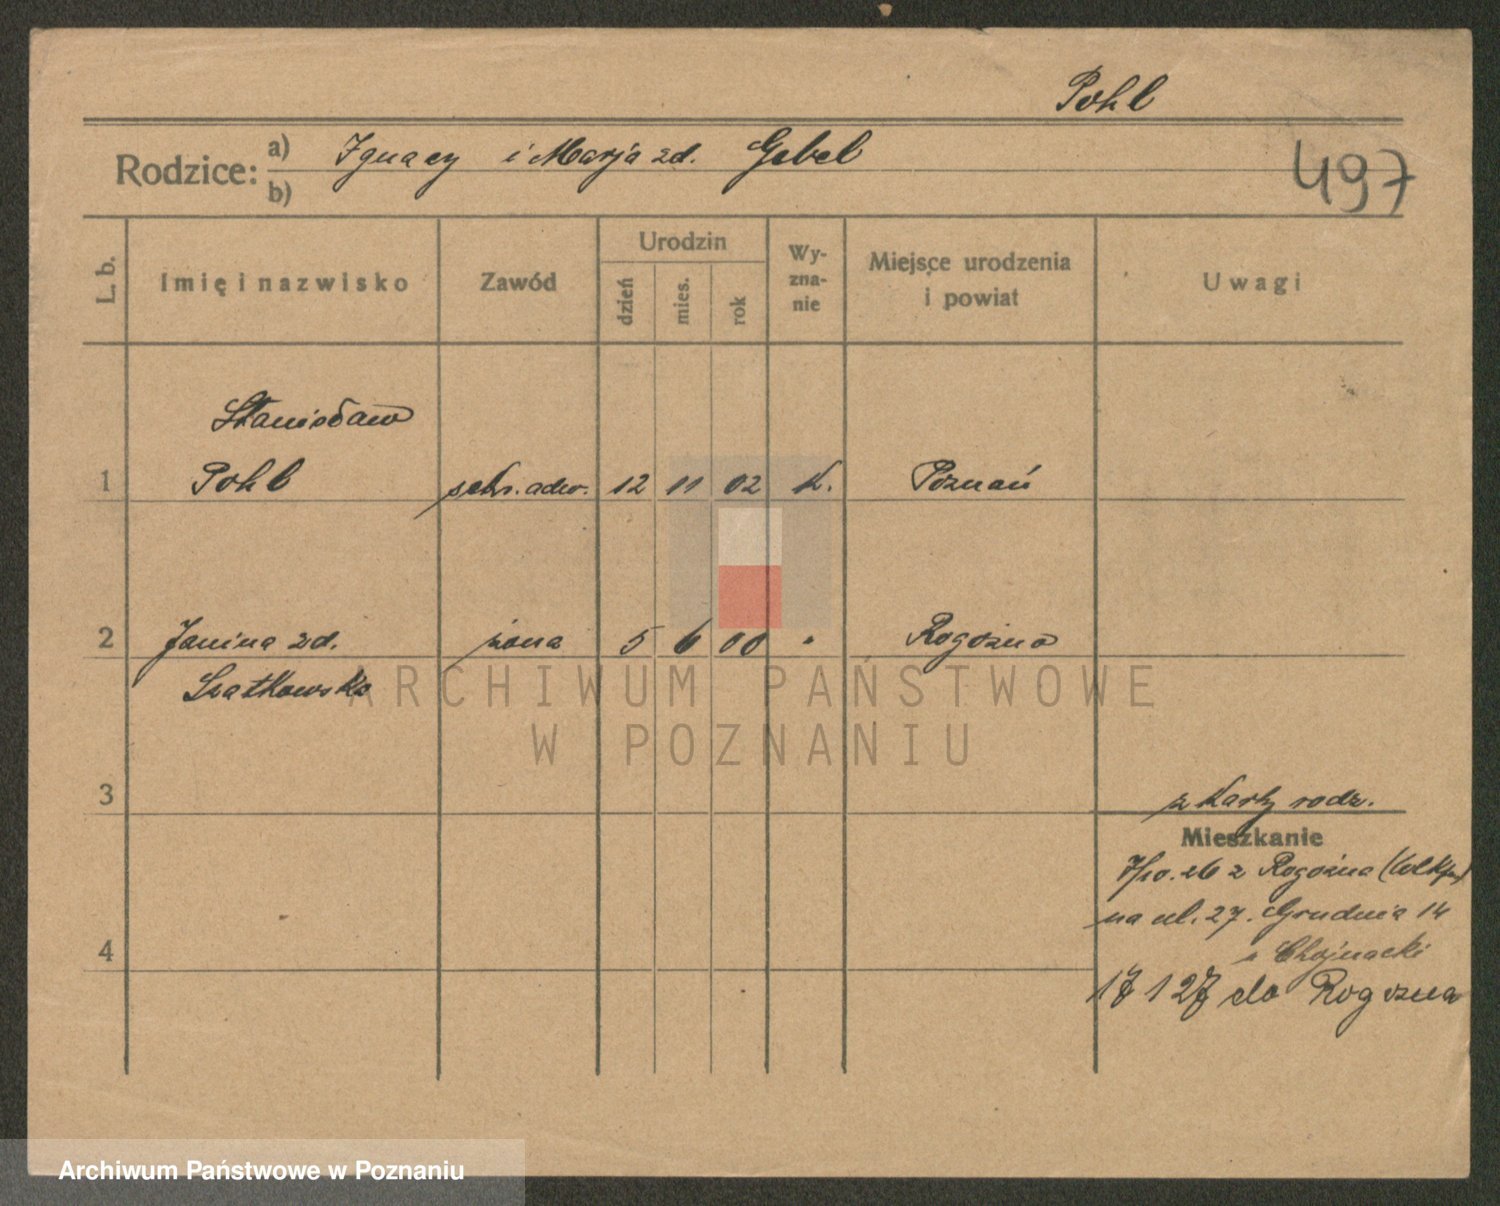 Pohl
Rodzice: a) Ignacy i Marja zd. Gebel
b)
497
L. b. Imię i nazwisko Zawód Urodzin dzień mies. rok Wy-zna-nie Miejsce urodzenia i powiat Uwagi
Stanisław
1 Pohl sekr. adw. 12 11 02 k. Poznań
2 Janina zd. żona 5 6 00 " Rogoźno
Szatkowska
ARCHIWUM PAŃSTWOWE
W POZNANIU
3 z karty rodz.
Mieszkanie
7/10. 26 z Rogoźna
na ul. 27. Grudnia 14
4 u Chojnacki
17 1 27 do Rogozna
Archiwum Państwowe w Poznaniu